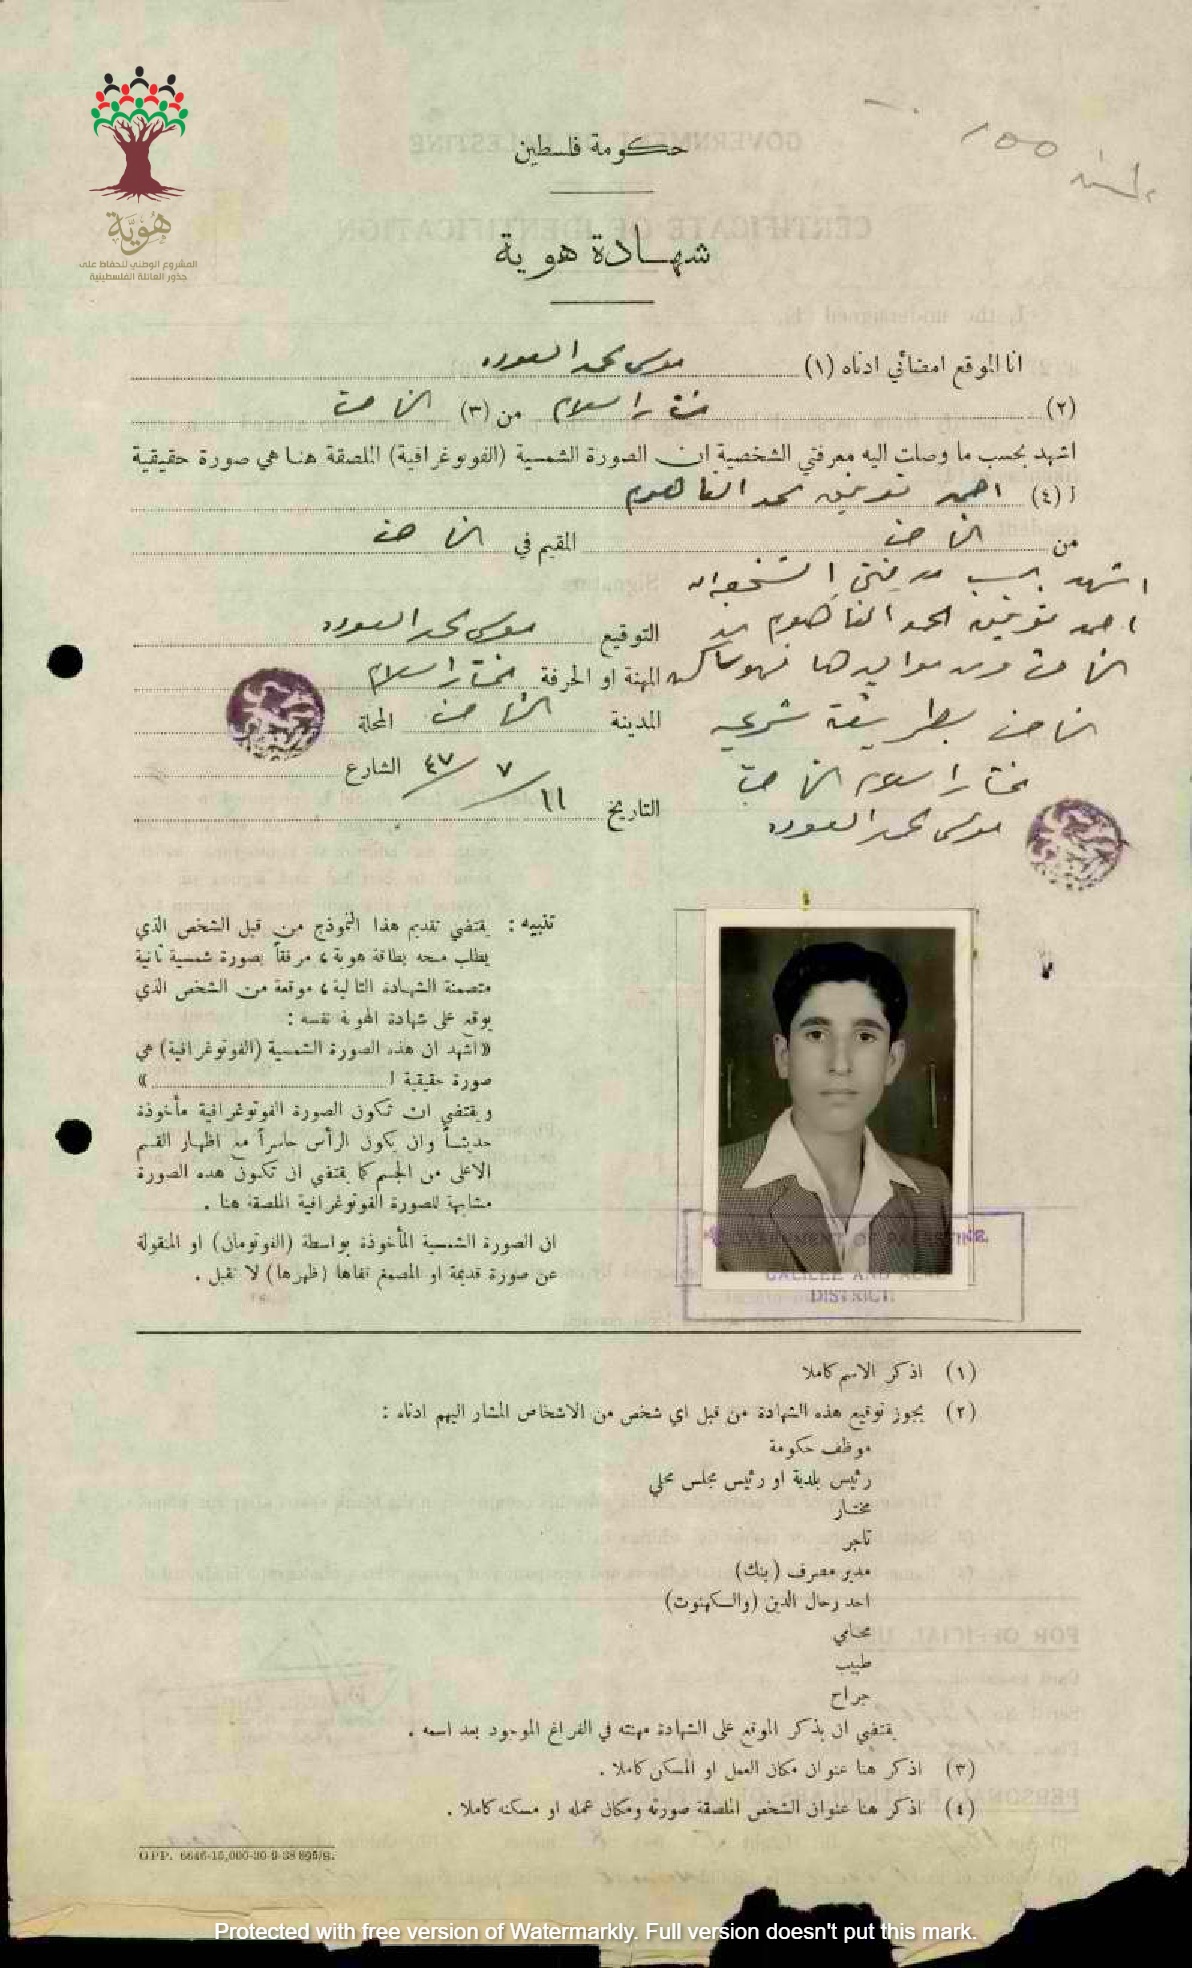 هُوِيَّة
المشروع الوطني للحفاظ على
جذور العائلة الفلسطينية
١٥٥
حكومة فلسطين
شهادة هوية
انا الموقع امضائي ادناه (١) موسى محمد العوده
(٢) مختار اسلام من (٣) الناصرة
اشهد بحسب ما وصلت اليه معرفتي الشخصية ان الصورة الشمسية (الفوتوغرافية) الملصقة هنا هي صورة حقيقية
ا (٤) احمد توفيق محمد الفاهوم
من الناصرة المقيم في الناصرة
اشهد بحسب معرفتي الشخصية ان
احمد توفيق الحمد الفاهوم من
الناصرة ومن مواليدها فهو ساكن
الناصرة بطريقة شرعية
مختار اسلام الناصرة
موسى محمد العوده
التوقيع موسى محمد العوده
المهنة او الحرفة مختار اسلام
المدينة الناصرة المحلة
الشارع
التاريخ ١١/٧/٤٧
تنبيه : يقتضي تقديم هذا النموذج من قبل الشخص الذي
يطلب منحه بطاقة هوية ، مرفقاً بصورة شمسية ثانية
متضمنة الشهادة التالية ، موقعة من الشخص الذي
يوقع على شهادة الهوية نفسه :
«اشهد ان هذه الصورة الشمسية (الفوتوغرافية) هي
صورة حقيقية ا »
ويقتضي ان تكون الصورة الفوتوغرافية مأخوذة
حديثاً وان يكون الرأس حاسراً مع اظهار القسم
الاعلى من الجسم كما يقتضي ان تكون هذه الصورة
مشابهة للصورة الفوتوغرافية الملصقة هنا .
ان الصورة الشمسية المأخوذة بواسطة (الفوتومان) او المنقولة
عن صورة قديمة او المصمغ قفاها (ظهرها) لا تقبل .
GOVERNMENT OF PALESTINE
GALILEE AND ACRE
DISTRICT.
(١) اذكر الاسم كاملا
(٢) يجوز توقيع هذه الشهادة من قبل اي شخص من الاشخاص المشار اليهم ادناه :
موظف حكومة
رئيس بلدية او رئيس مجلس محلي
مختار
تاجر
مدير مصرف (بنك)
احد رجال الدين (والكهنوت)
محامي
طبيب
جراح
يقتضي ان يذكر الموقع على الشهادة مهنته في الفراغ الموجود بعد اسمه .
(٣) اذكر هنا عنوان مكان العمل او المسكن كاملا .
(٤) اذكر هنا عنوان الشخص الملصقة صورته ومكان عمله او مسكنه كاملا .
GPP. 6646-15,000-30-9-38 895/S.
Protected with free version of Watermarkly. Full version doesn't put this mark.